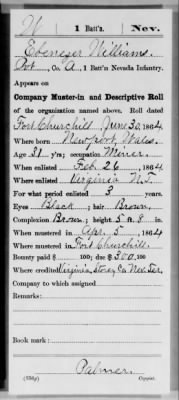 W | 1 Batt'n. | Nev.
Ebenezer Williams.
Pvt., Co. A, 1 Batt'n Nevada Infantry.
Appears on
Company Muster-in and Descriptive Roll
of the organization named above. Roll dated
Fort Churchill June 30, 1864
Where born Newport, Wales.
Age 31 y'rs; occupation Miner.
When enlisted Feb. 26, 1864
Where enlisted Virginia N.T.
For what period enlisted 3 years.
Eyes Black; hair Brown.
Complexion Brown; height 5 ft. 8 in.
When mustered in Apr. 5, 1864
Where mustered in Fort Churchill.
Bounty paid $ 100; due $ 300 100
Where credited Virginia, Storey Co. Nev. Ter.
Company to which assigned
Remarks:
Book mark:
Palmer
(336g) Copyist.